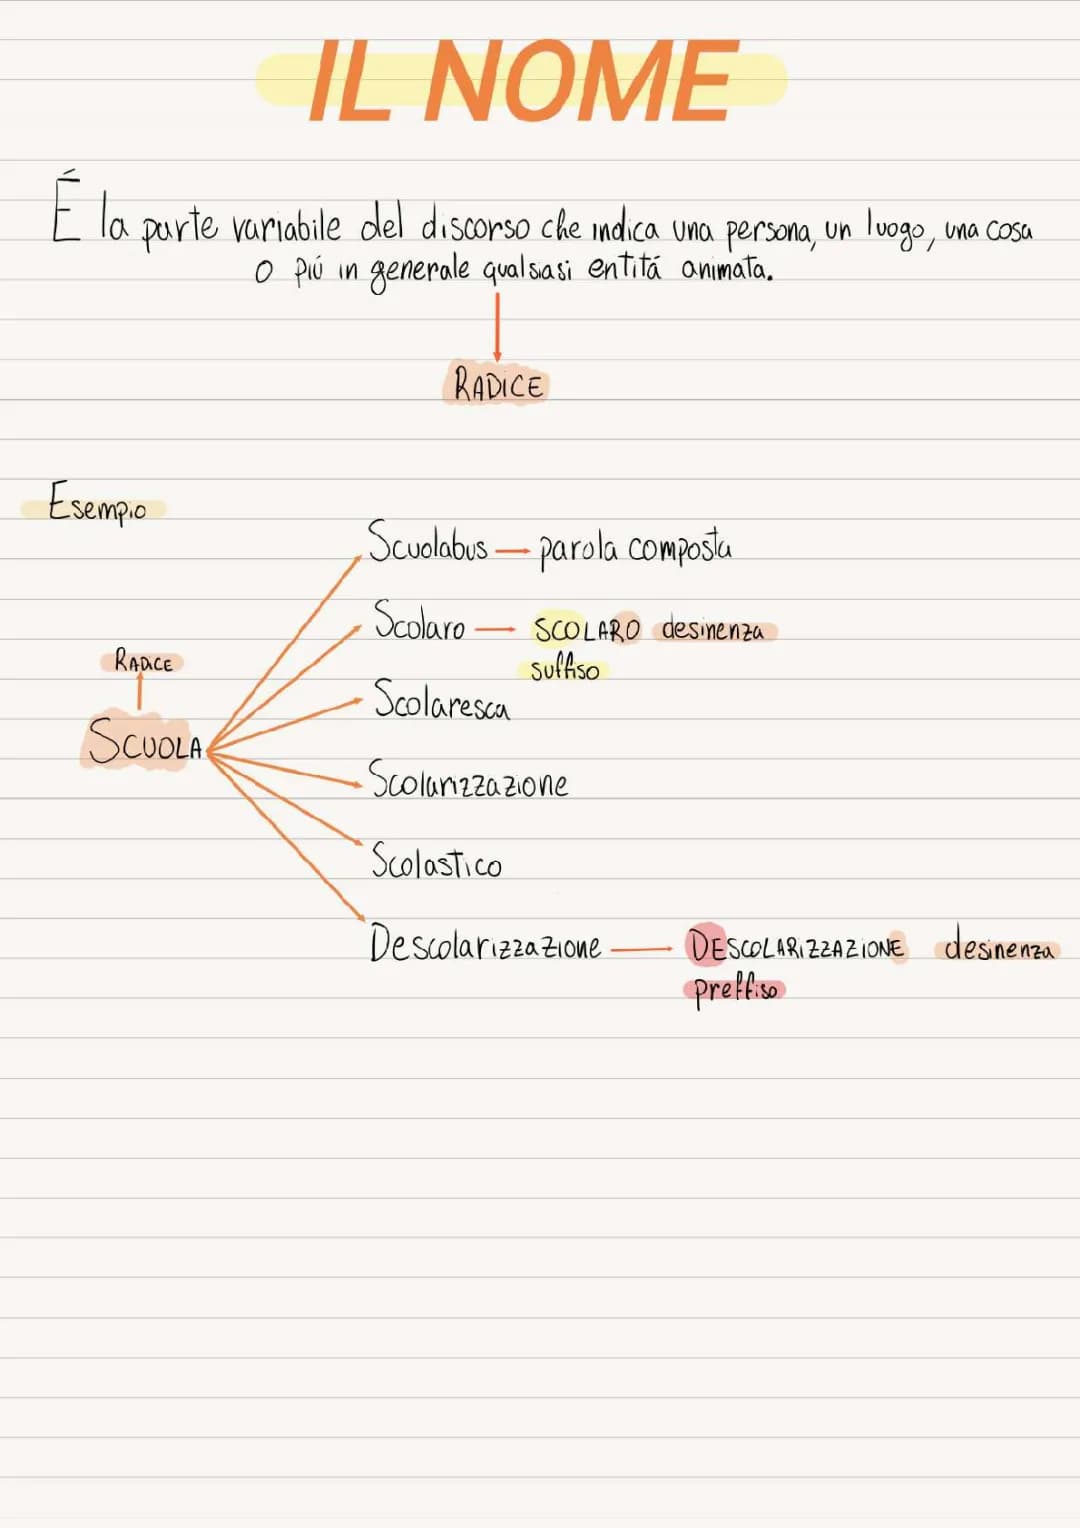 IL NOME
É la parte variabile del discorso che indica una persona, un luogo, una cosa
o piú in generale qualsiasi entitá animata.
RADICE
Esempio
Scuolabus parola composta
Scolaro SCOLARO desinenza
suffiso
RADICE
Scolaresca
SCUOLA
Scolarizzazione
Scolastico
Descolarizzazione DESCOLARIZZAZIONE desinenza
preffiso